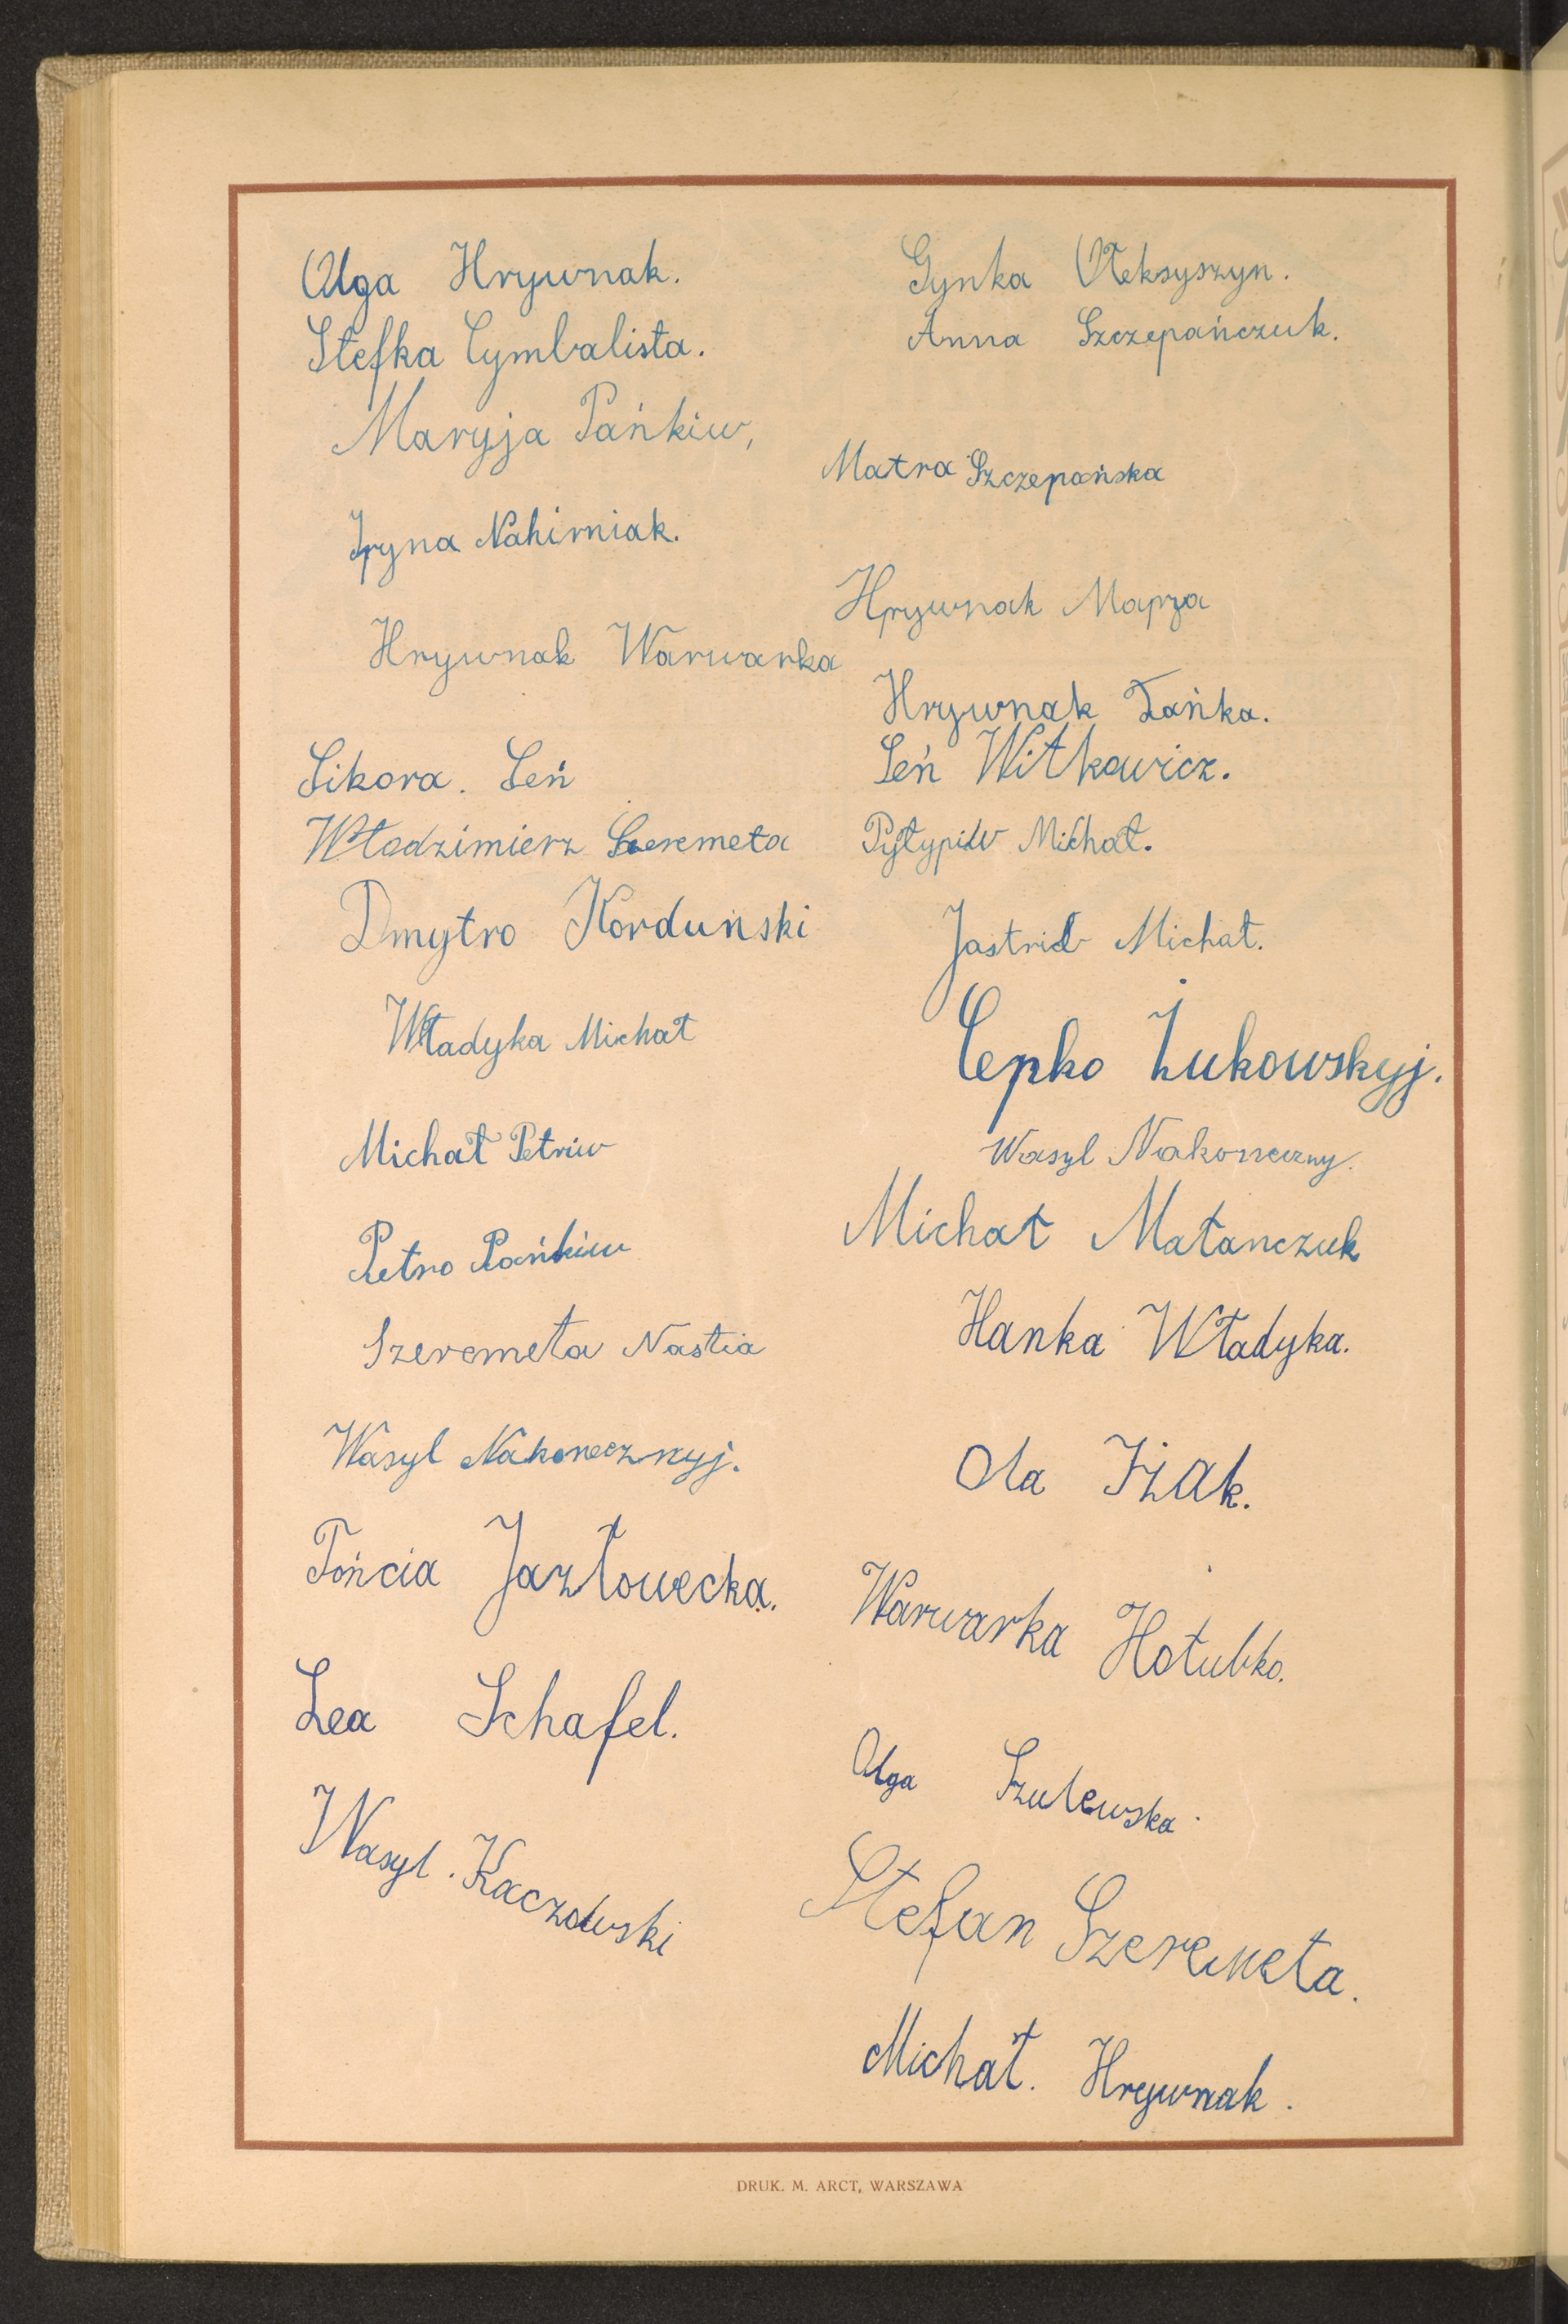 Olga Hrywnak.
Stefka Cymbalista.
Maryja Pańkiw,
Iryna Nahirniak.
Hrywnak Warwarka
Sikora. Seń
Włodzimierz Szeremeta
Dmytro Korduński
Władyka Michał
Michał Petriw
Petro Pańkiw
Szeremeta Nastia
Wasyl Nakonecznyj.
Tońcia Jazłowecka.
Lea Schafel.
Wasyl. Kaczowski
Gynka Ołeksyszyn.
Anna Szczepańczuk.
Matra Szczepańska
Hrywnak
Hrywnak Tańka.
Seń Witkowicz.
Pyłypiw Michał.
Jastrib Michał.
Cepko Żukowskyj.
Wasyl Nakoneczny.
Michał Małanczuk
Hanka Władyka.
Ola Iżak.
Warwarka Hołubko.
Olga Szulewska.
Stefan Szeremeta.
Michał. Hrywnak.
DRUK. M. ARCT, WARSZAWA